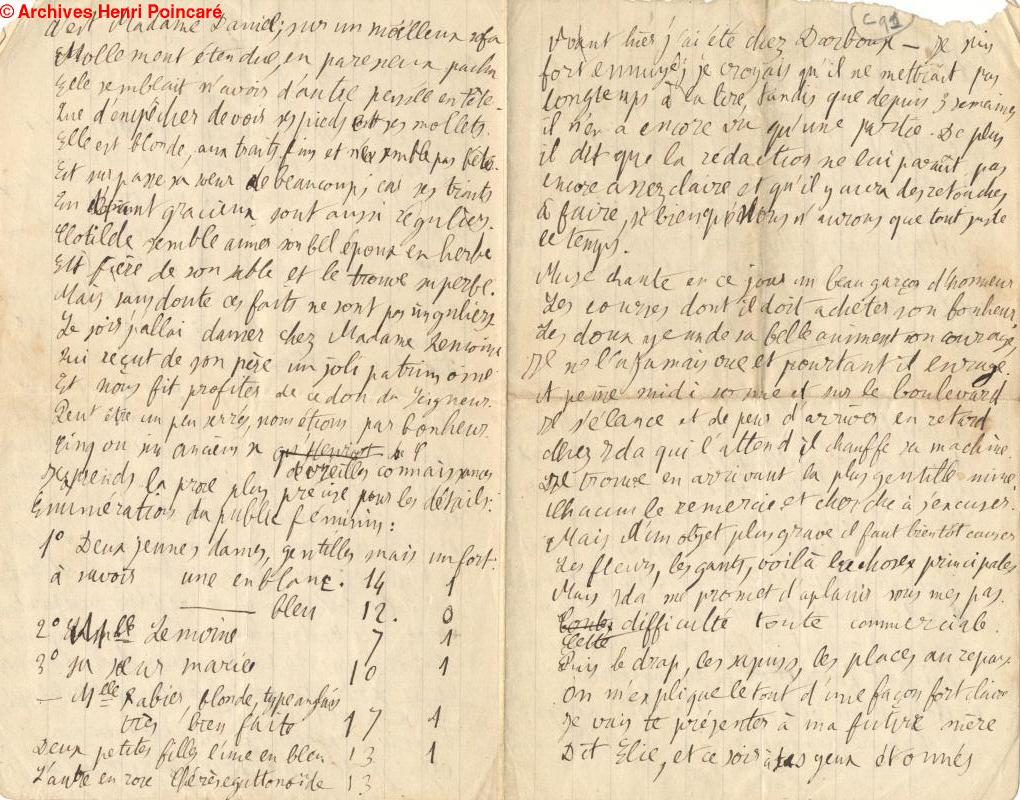 © Archives Henri Poincaré
C'est Madame Daniel; sur un moëlleux sofa
Mollement étendue, en paresseux pacha
Elle semblait n'avoir d'autre pensée en tête
Que d'empêcher de voir ses pieds et ses mollets.
Elle est blonde, aux traits fins et ne semble pas bête.
Et surpasse sa sœur de beaucoup; car ses traits
En étant gracieux sont aussi réguliers.
Clotilde semble aimer son bel époux en herbe
Est fière de son sable et le trouve superbe.
Mais sans doute ces faits ne sont pas singuliers.
Le soir j'allai danser chez Madame Lemoine
Qui reçut de son père un joli patrimoine
Et nous fit profiter de ce don du Seigneur.
Peut être un peu serrés, nous étions par bonheur.
Cinq ou six anciens
de vieilles connaissances
Je reprends la prose plus précise pour les détails:
Enumération du public féminin:
1° Deux jeunes dames, gentilles mais un fort:
à savoir une en blanc. 14 1
—— bleu 12. 0
2° Mlle Lemoine 7 1
3° sa sœur mariée 10 1
— Melle Rabier, blonde, type anglais
très bien faite 17 1
Deux petites filles l'une en bleu 13 1
L'autre en rose 13
C91
Avant hier j'ai été chez Darboux — je suis
fort ennuyé; je croyais qu'il ne mettrait pas
longtemps à la lire, tandis que depuis 3 semaines
il n'en a encore vu qu'une partie. De plus
il dit que la rédaction ne lui paraît pas
encore assez claire et qu'il y aura des retouches
à faire, si bien que nous n'aurons que tout juste
le temps.
Muse chante en ce jour un beau garçon d'honneur
Les courses dont il doit acheter son bonheur,
Les doux yeux de sa belle animent son courage,
Il ne l'a jamais vue et pourtant il enrage.
A peine midi sonne et sur le boulevard
Il s'élance et de peur d'arriver en retard
Chez Ida qui l'attend il chauffe sa machine.
Il trouve en arrivant la plus gentille mine.
Chacun le remercie et cherche à s'excuser.
Mais d'un objet plus grave il faut bientôt causer
Les fleurs, les gants, voilà les choses principales
Mais Ida me promet d'aplanir sous mes pas.
Cette difficulté toute commerciale.
Puis le drap, les sapins, les places au repas
On m'explique le tout d'une façon fort claire
Je vais te présenter à ma future mère
Dit Elie, et ce soir à tes yeux étonnés